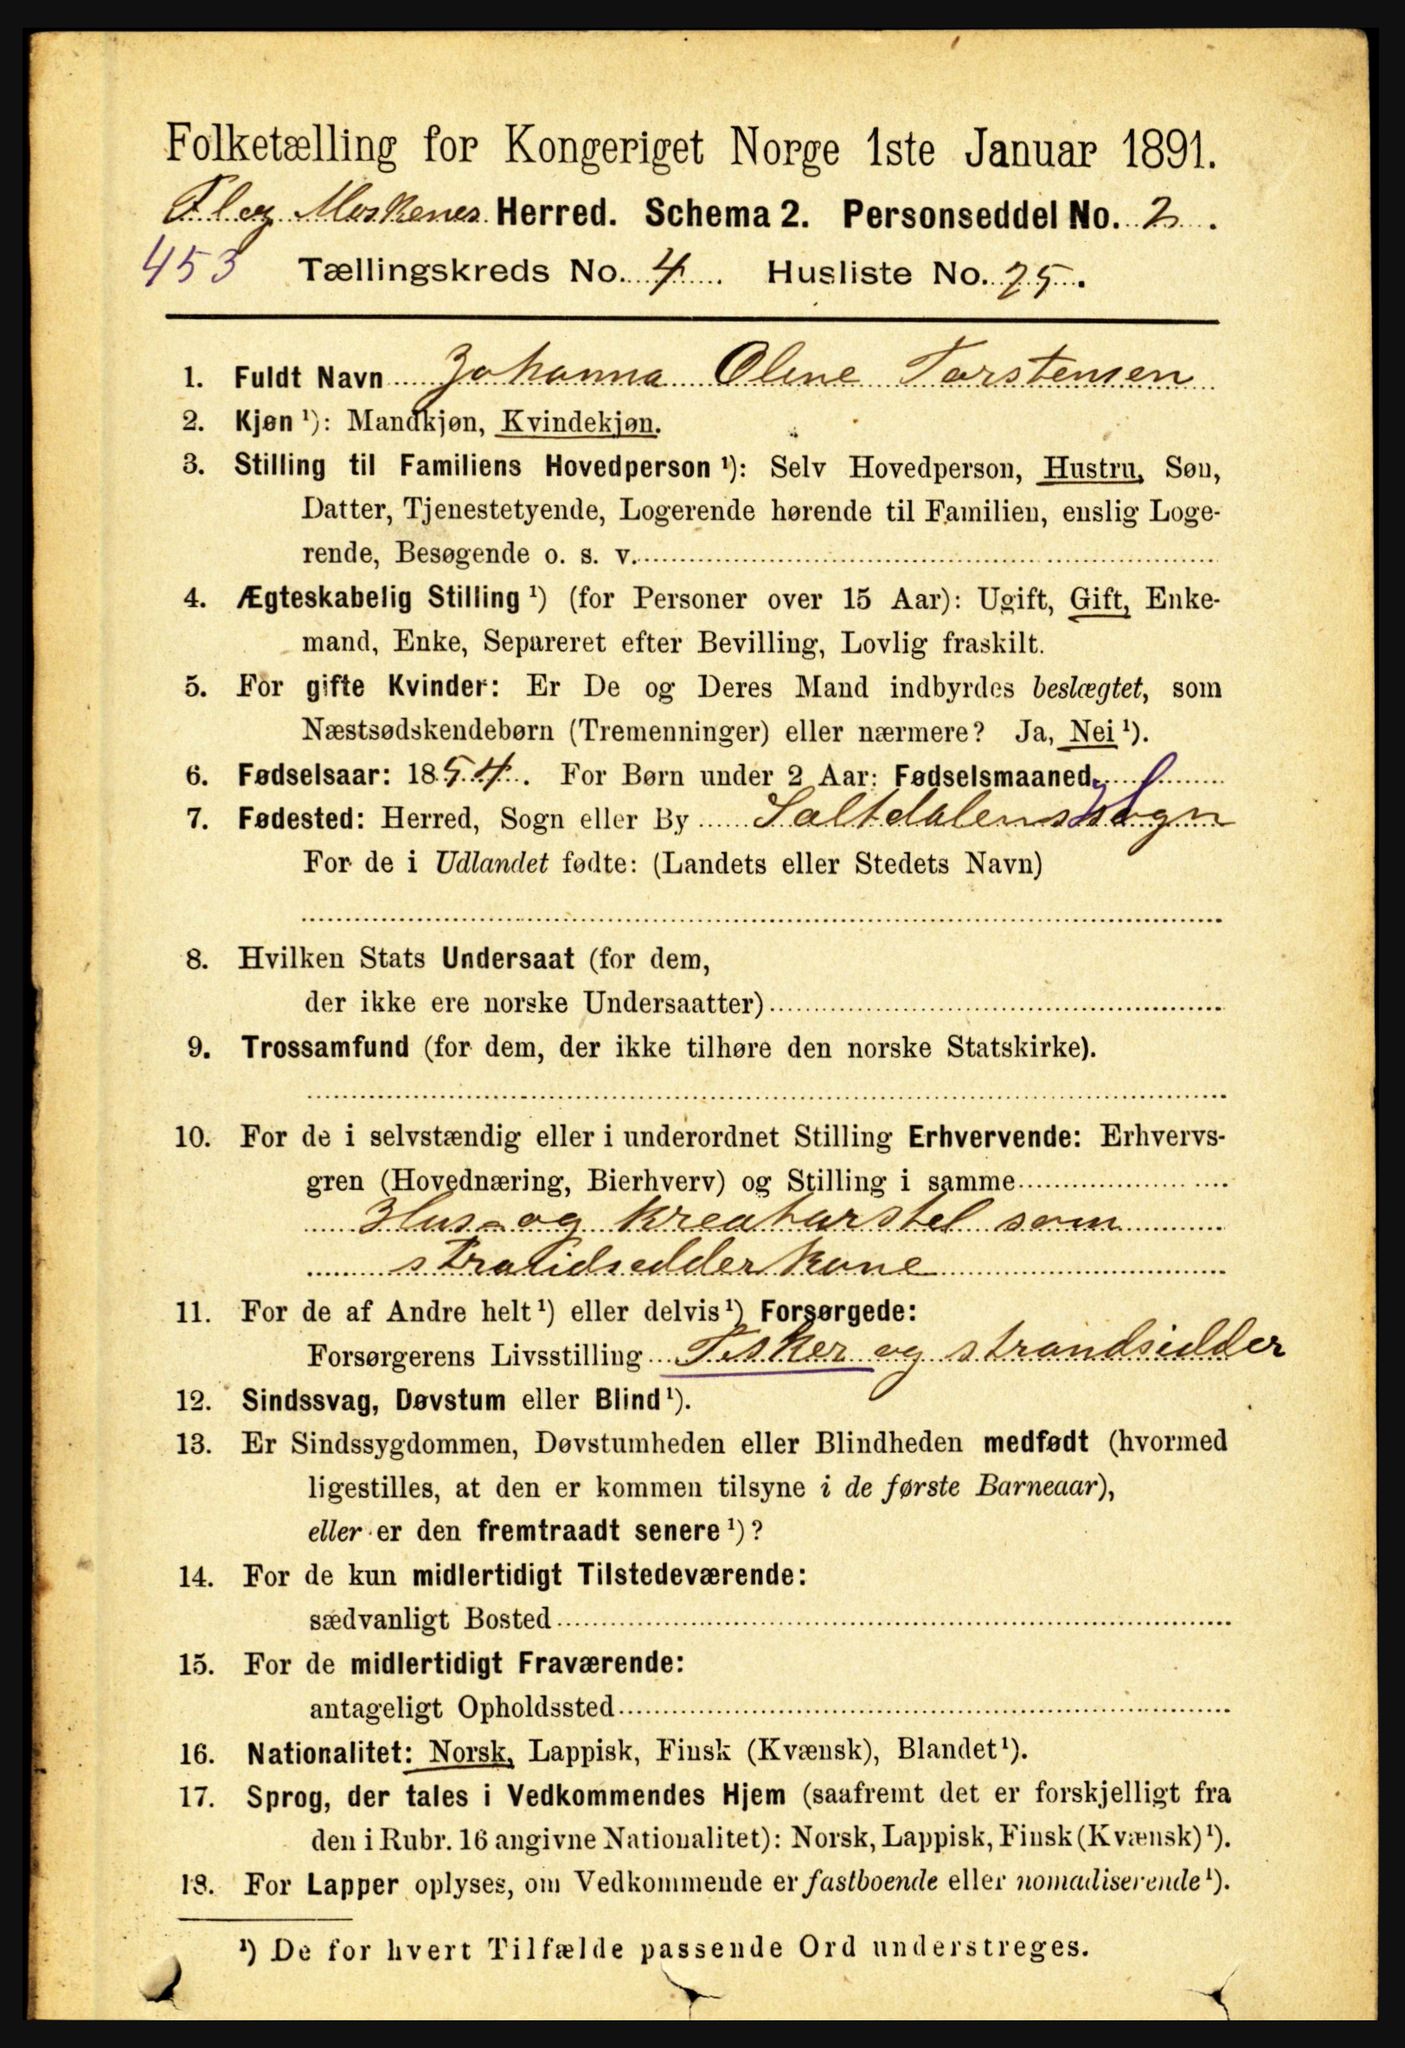 Folketælling for Kongeriget Norge 1ste Januar 1891.
Fl og Moskenes Herred. Schema 2. Personseddel No. 2.
453 Tællingskreds No. 4. Husliste No. 25.
1. Fuldt Navn Johanna Oline Torstensen
2. Kjøn ¹): Mandkjøn, Kvindekjøn.
3. Stilling til Familiens Hovedperson ¹): Selv Hovedperson, Hustru, Søn,
Datter, Tjenestetyende, Logerende hørende til Familien, enslig Loge-
rende, Besøgende o. s. v.
4. Ægteskabelig Stilling ¹) (for Personer over 15 Aar): Ugift, Gift, Enke-
mand, Enke, Separeret efter Bevilling, Lovlig fraskilt.
5. For gifte Kvinder: Er De og Deres Mand indbyrdes beslægtet, som
Næstsødskendebørn (Tremenninger) eller nærmere? Ja, Nei ¹).
6. Fødselsaar: 1854. For Børn under 2 Aar: Fødselsmaaned
7. Fødested: Herred, Sogn eller By Saltdalens sogn
For de i Udlandet fødte: (Landets eller Stedets Navn)
8. Hvilken Stats Undersaat (for dem,
der ikke ere norske Undersaatter)
9. Trossamfund (for dem, der ikke tilhøre den norske Statskirke).
10. For de i selvstændig eller i underordnet Stilling Erhvervende: Erhvervs-
gren (Hovednæring, Bierhverv) og Stilling i samme
Hus- og kreaturstel som
strandsidderkone
11. For de af Andre helt ¹) eller delvis ¹) Forsørgede:
Forsørgerens Livsstilling Fisker og strandsidder
12. Sindssvag, Døvstum eller Blind ¹).
13. Er Sindssygdommen, Døvstumheden eller Blindheden medfødt (hvormed
ligestilles, at den er kommen tilsyne i de første Barneaar),
eller er den fremtraadt senere ¹)?
14. For de kun midlertidigt Tilstedeværende:
sædvanligt Bosted
15. For de midlertidigt Fraværende:
antageligt Opholdssted
16. Nationalitet: Norsk, Lappisk, Finsk (Kvænsk), Blandet ¹).
17. Sprog, der tales i Vedkommendes Hjem (saafremt det er forskjelligt fra
den i Rubr. 16 angivne Nationalitet): Norsk, Lappisk, Finsk (Kvænsk) ¹).
18. For Lapper oplyses, om Vedkommende er fastboende eller nomadiserende ¹).
¹) De for hvert Tilfælde passende Ord understreges.